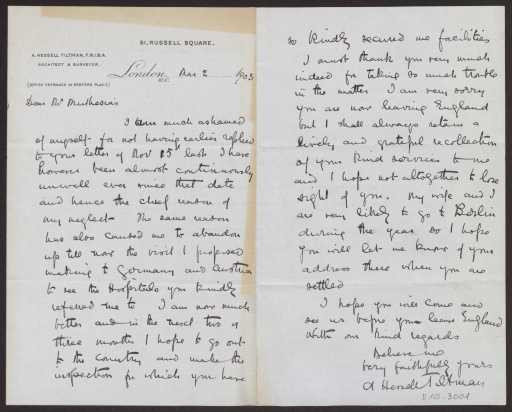 51, RUSSELL SQUARE,
A. HESSELL TILTMAN, F.R.I.B.A.
ARCHITECT & SURVEYOR.
London, Mar 2 1903
W.C.
(OFFICE ENTRANCE IN BEDFORD PLACE.)
Dear Mr Muthesius
I am much ashamed
of myself for not having earlier replied
to your letter of Nov 15th last I have
however been almost continuously
unwell ever since that date
and hence the chief reason of
my neglect The same reason
has also caused me to abandon
up till now the visit I proposed
making to Germany and Austria
to see the Hospitals you kindly
referred me to I am now much
better and in the next two or
three months I hope to go out
to the country and make the
inspection for which you have
so kindly secured me facilities
I must thank you very much
indeed for taking so much trouble
in the matter I am very sorry
you are now leaving England
but I shall always retain a
lively and grateful recollection
of your kind services to me
and I hope not altogether to lose
sight of you. My wife and I
are very likely to go to Berlin
during the year so I hope
you will let me know of your
address there when you are
settled
I hope you will come and
see us before you leave England
With our kind regards
Believe me
Very faithfully yours
A Hessell Tiltman